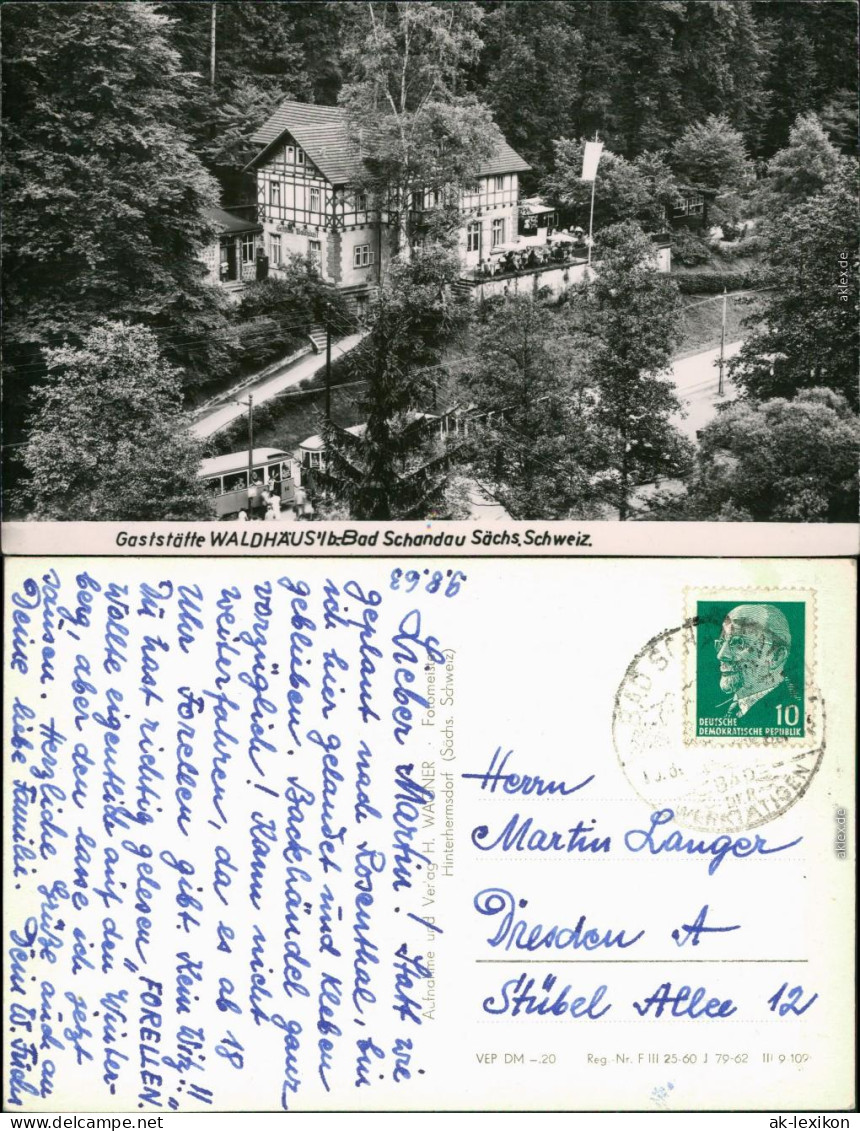 Gaststätte WALDHÄUS'l b. Bad Schandau Sächs. Schweiz.
9.8.63
Lieber Martin! Statt wie
geplant nach Rosenthal, bin
ich hier gelandet und kleben
geblieben. Backhändel ganz
vorzüglich! Kann nicht
weiterfahren, da es ab 18
Uhr Forellen gibt. Kein Witz!!
Du hast richtig gelesen „FORELLEN."
Wollte eigentlich auf den Winter-
berg, aber den lasse ich jetzt
sausen. Herzliche Grüße auch an
Deine liebe Familie. Dein W. Fuchs
Aufnahme und Verlag H. WAGNER · Fotomeister
Hinterhermsdorf (Sächs. Schweiz)
BAD SCHANDAU
BAD
DER
WERKTÄTIGEN
10
DEUTSCHE
DEMOKRATISCHE REPUBLIK
Herrn
Martin Langer
Dresden A
Stübel Allee 12
VEP DM –.20 Reg.-Nr. F III 25-60 J 79-62 III 9 109
aklex.de
aklex.de
www.ak-ansichtskarten.de
ak-lexikon